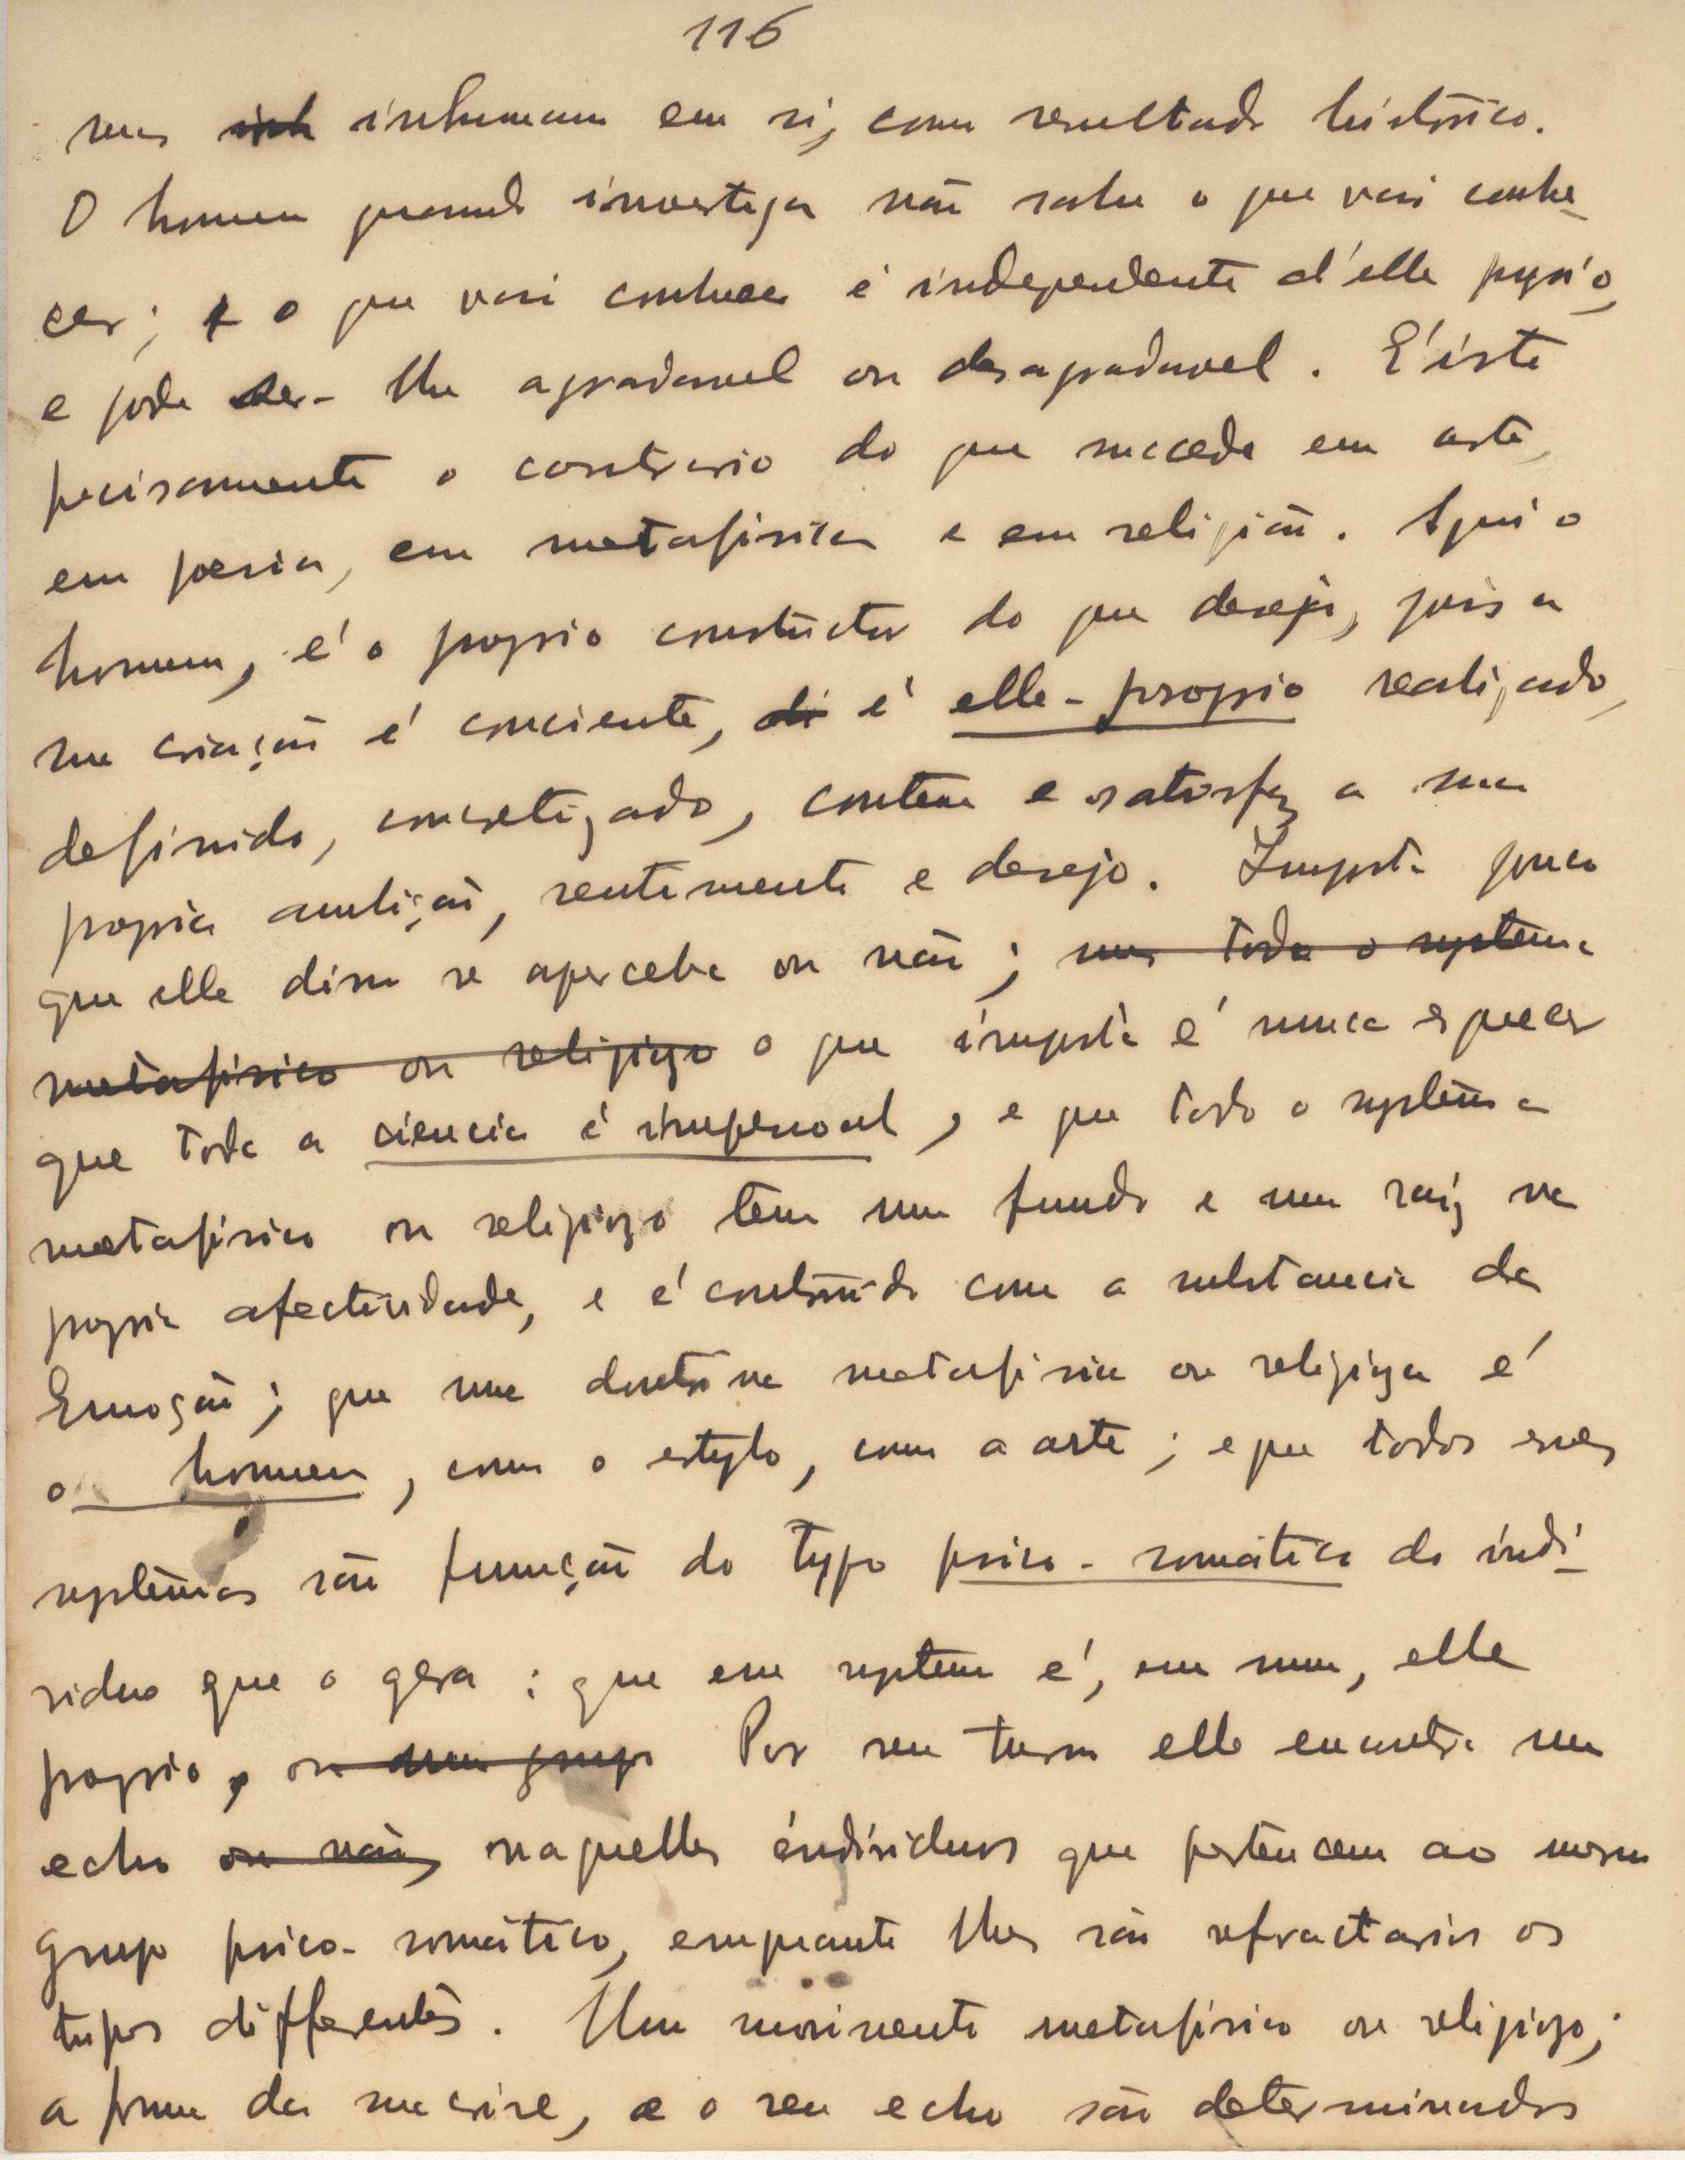 116
mas ~~inh~~ inhumana em si, como resultado histórico.
O homem quando investiga não sabe o que vai conhe-
cer; e o que vai conhecer é independente d'elle proprio,
e pode ser-lhe agradavel ou desagradavel. É isto
precisamente o contrario do que succede em arte,
em poesia, em metafisica e em religião. Aqui o
homem, é o proprio constructor do que deseja, pois a
sua criação é conciente, ~~di~~ é elle-proprio realizado,
definido, concretizado, contem e satisfaz a sua
propria ambição, sentimento e desejo. Importa pouco
que elle disso se aperceba ou não; ~~mas todo o systema~~
~~metafisico ou religiozo~~ o que importa é nunca esquecer
que toda a ciencia é impessoal, e que todo o systema
metafisico ou religiozo tem um fundo e uma raiz na
propria afectividade, e é construido com a substancia da
Emoção; que uma doutrina metafisica ou religioza é
o homem, como o estylo, como a arte; e que todos esses
systemas são função do typo psico-somático do indi-
viduo que o gera: que esse systema é, em suma, elle
proprio, ~~ou um grupo~~ Por seu turno elle encontra um
echo ~~ou não,~~ naquelles individuos que pertencem ao mesmo
grupo psico-somático, emquanto lhes são refractarios os
tipos differentes. Um movimento metafisico ou religiozo,
a forma da sua crise, e o seu echo são determinados